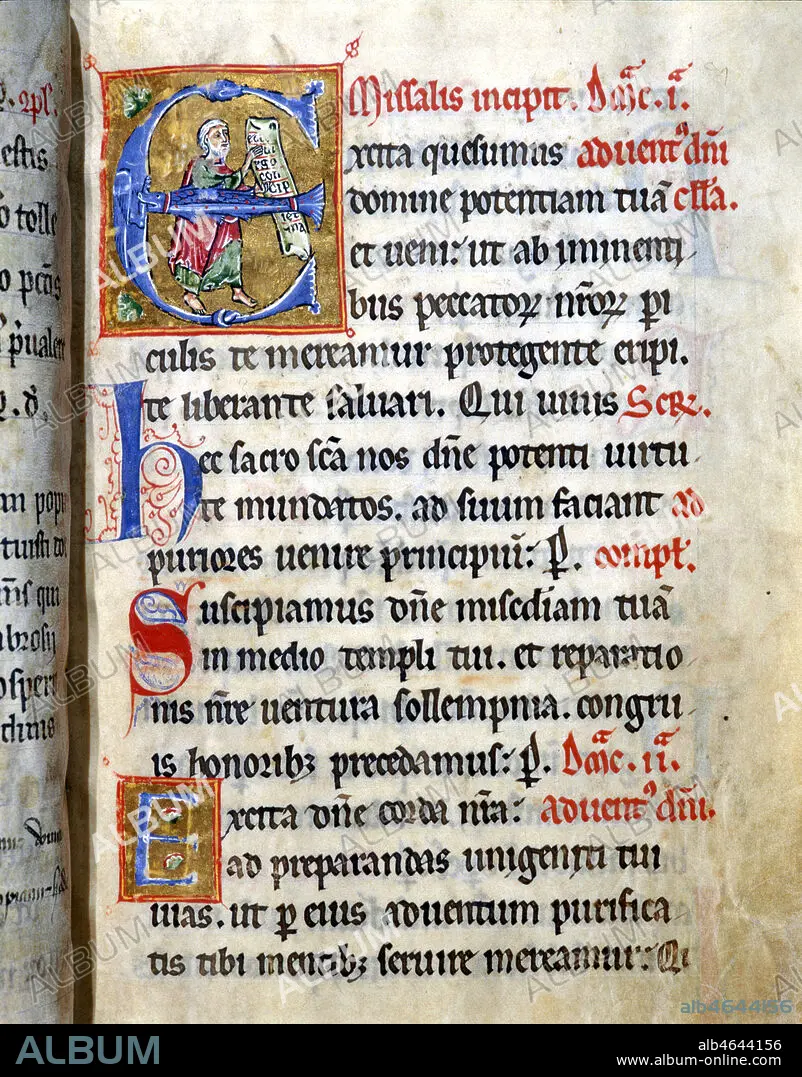 Missalis incipit. Dn̄ic. i.ª
Excita quesumus aduent⁹ dn̄i
domine potentiam tuā c̄ll̄a.
et ueni: ut ab iminenti
bus peccatoꝝ nr̄oꝝ pi
culis te mereamur protegente eripi.
te liberante saluari. Qui uiuis Secꝝ.
hec sacro sc̄a nos dn̄e potenti uirtu
te mundatos. ad suum faciant ad
puriores uenire principiū: P̄. compl̄.
Suscipiamus dn̄e misc̄diam tuā
in medio templi tui. et reparatio
nis nr̄e uentura sollempnia. congru
is honoribꝫ precedamus: P̄. Dn̄ic. ii.ª
Excita dn̄e corda nr̄a: aduent⁹ dn̄i.
ad preparandas unigeniti tui
uias. ut ꝑ eius aduentum purifica
tis tibi mentibꝫ seruire mereamur: Qi
alb4644156
ALBUM
alb4644156
www.album-online.com